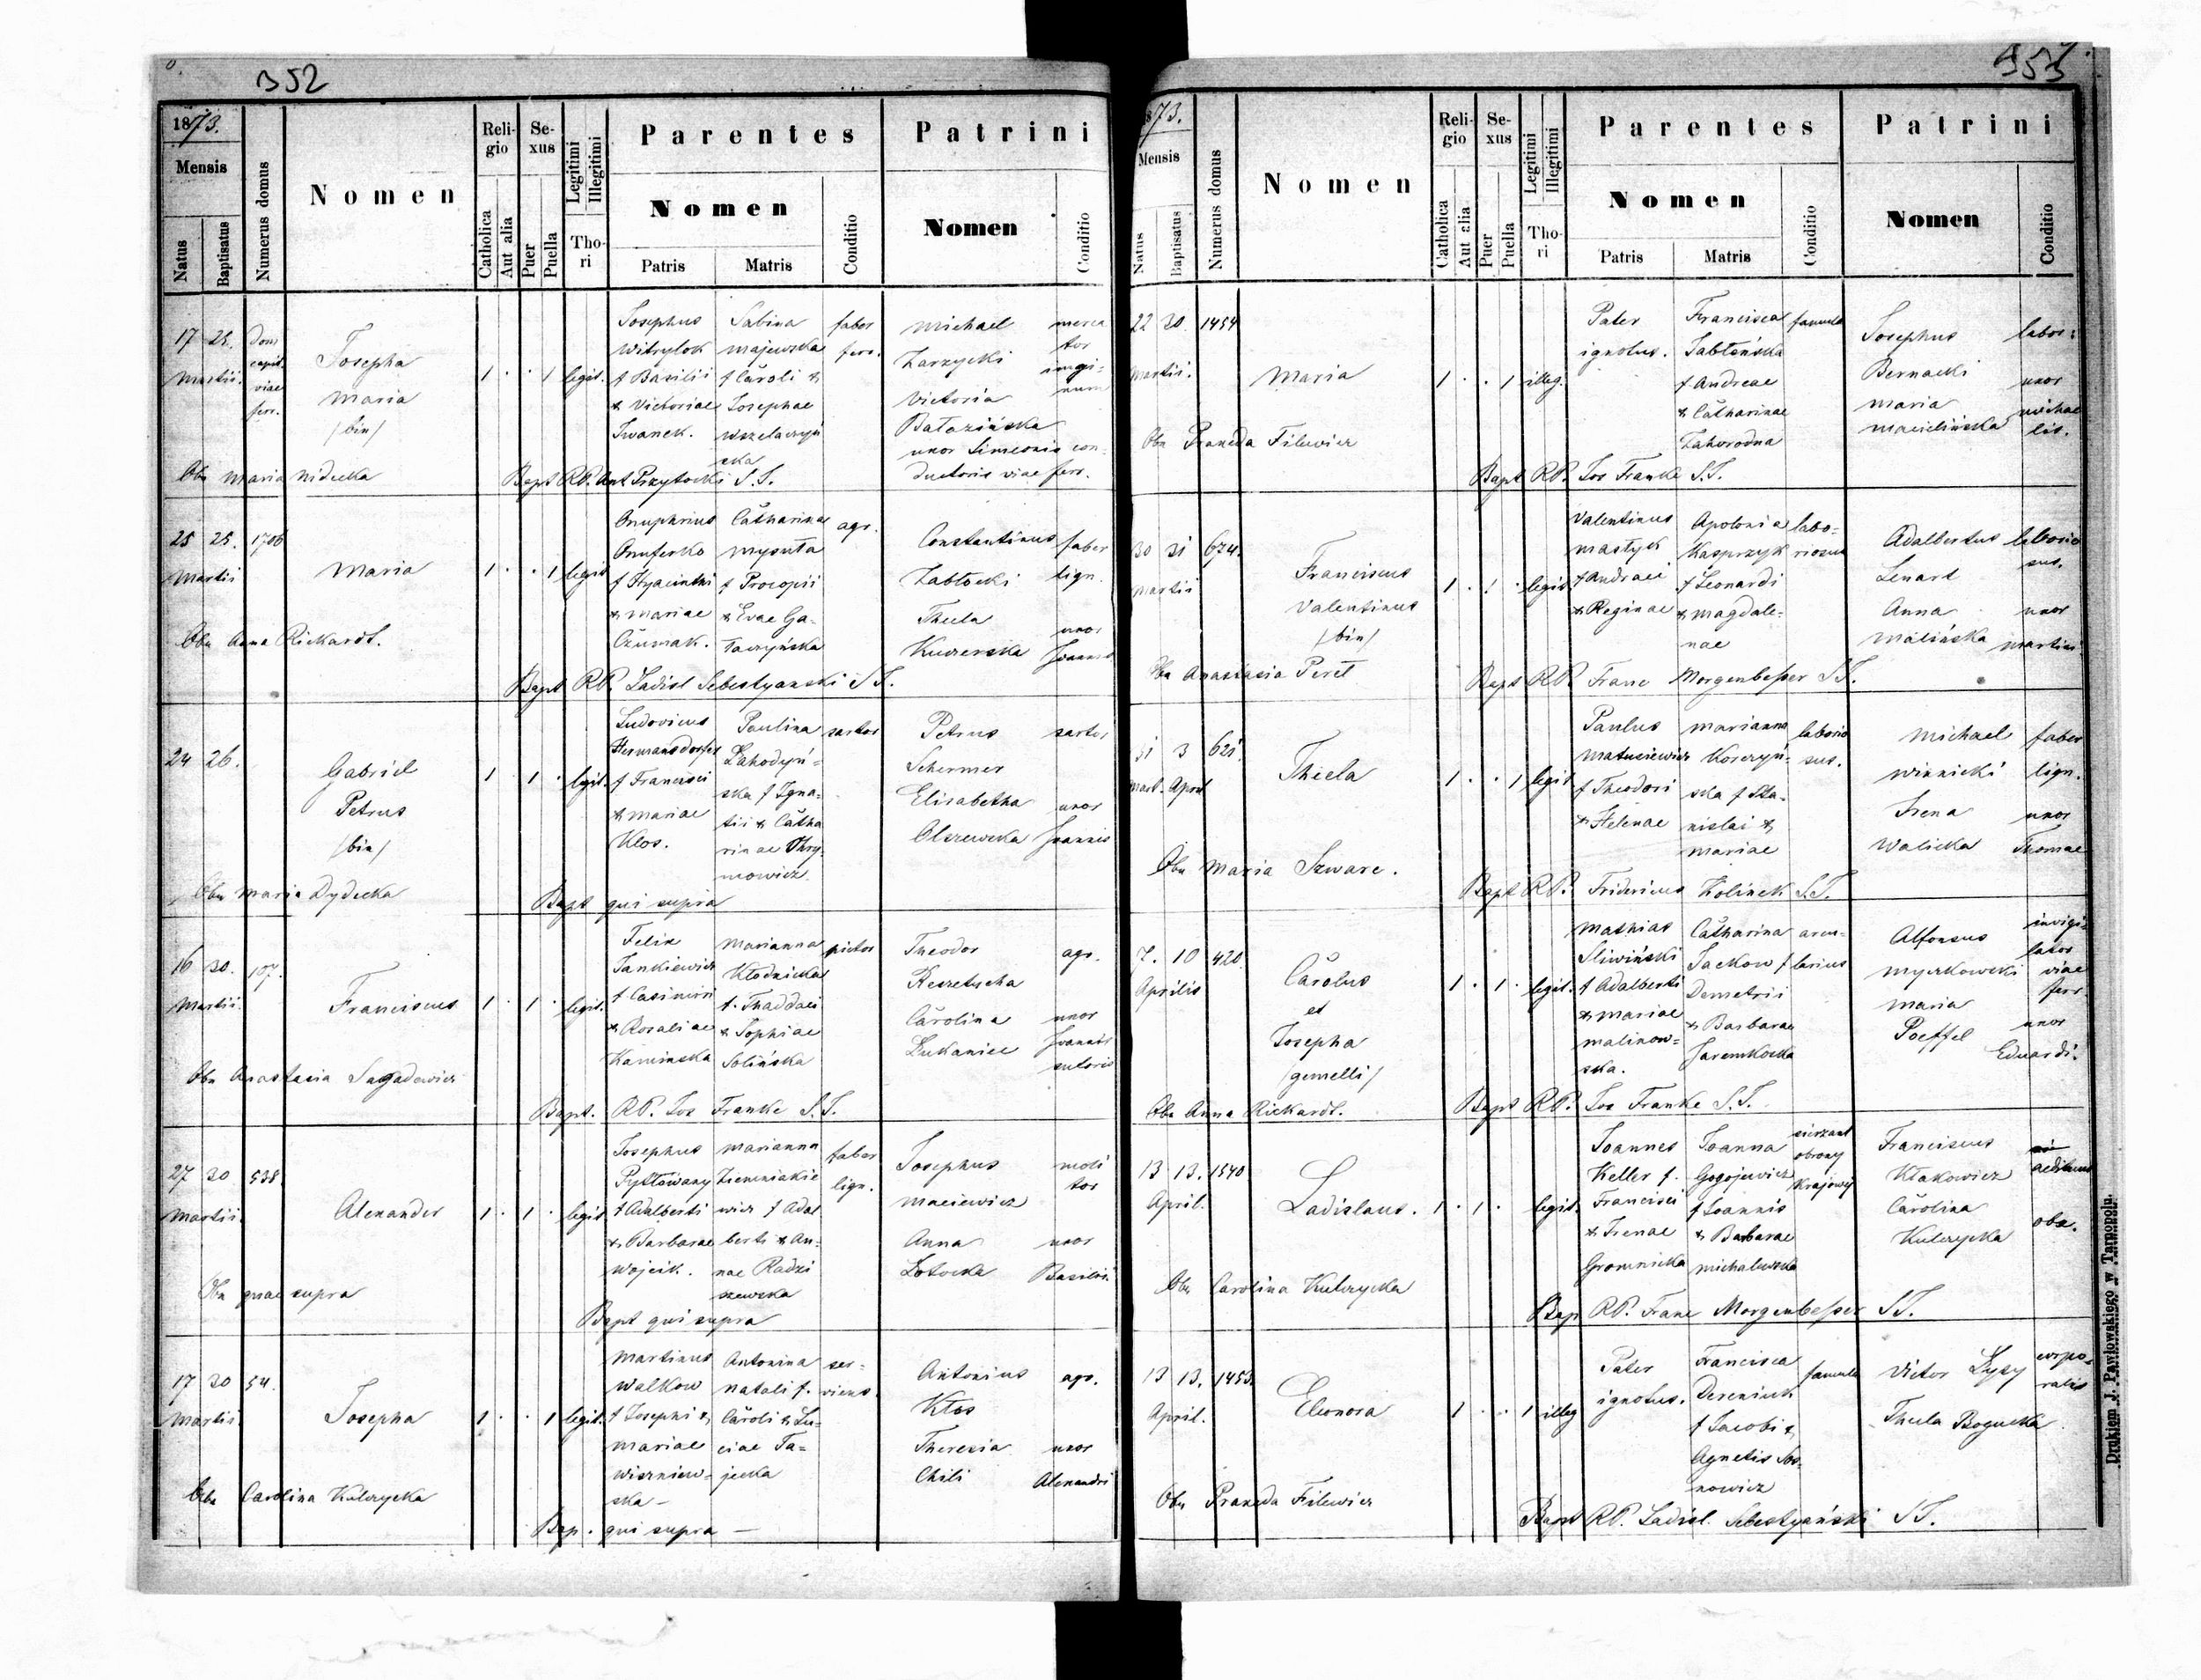 352
1873.
Mensis
Natus
Baptisatus
Numerus domus
Nomen
Religio
Catholica
Aut alia
Sexus
Puer
Puella
Legitimi
Illegitimi
Thori
Parentes
Nomen
Patris
Matris
Conditio
Patrini
Nomen
Conditio
17 25. Dom
capit.
viae
ferr.
Martii.
Josepha
Maria
/bin/
1 . . 1 legit.
Josephus
Witrylok
f Basilii
& Victoriae
Iwanek.
Sabina
Majewska
f Caroli &
Josephae
Wszelaczyń
ska
faber
ferr.
Michael
Zarzycki
Victoria
Batazińska
uxor Simeonis con-
ductoris viae ferr.
merca
tor
imagi-
num
Obs Maria Nidecka
Bapt RP. Ant Przytocki S.J.
25 25. 1706
Martii
Maria
1 . . 1 legit
Onuphrius
Onuferko
f Hyacinthi
& Mariae
Czumak.
Catharina
Mysuta
f Procopii
& Evae Ga-
łaczyńska
agr.
Constantinus
Zabłocki
Thecla
Kucierska
faber
lign.
uxor
Joannis
Obs Anna Rickardt.
Bapt RP. Ladisl Sebestyanski S.J.
24 26.
Gabriel
Petrus
/bin/
1 . 1 . legit.
Ludovicus
Hermansdorfer
f Francisci
& Mariae
Klos.
Paulina
Zahodyń-
ska f Igna-
tii & Catha
rinae Thry-
mowicz
sartor
Petrus
Schermer
Elisabetha
Olszewska
sartor
uxor
Joannis
Obs Maria Dydecka
Bapt qui supra
16 30. 107.
Martii.
Franciscus
1 . 1 . legit.
Felix
Jankiewicz
f Casimiri
& Rosaliae
Kaminska
Marianna
Kłodnicka
f. Thaddaei
& Sophiae
Solińska
pictor
Theodor
Keszetucha
Carolina
Lukaniec
agr.
uxor
Joannis
sutoris
Obs Anastasia Sagadewicz
Bapt. RP. Jos Franke S.J.
27 30 538.
Martii
Alexander
1 . 1 . legit
Josephus
Pyttowany
f Adalberti
& Barbarae
Wojcik.
Marianna
Ziemniakie
wicz f Adal
berti & An-
nae Radzi
szewska
faber
lign.
Josephus
Maciewicz
Anna
Lotocka
moli
tor
uxor
Basilii.
Obs quae supra
Bapt qui supra
17 30 54.
Martii
Josepha
1 . . 1 legit.
Martinus
Walkow
f Josephi &
Mariae
Wiszniew-
ska -
Antonina
Natali f.
Caroli & Lu-
ciae Ta-
jecka
ser-
viens.
Antonius
Kłos
Theresia
Chili
agr.
uxor
Alexandri
Obs Carolina Kulczycka
Bap. qui supra —
353
1873.
Mensis
Natus
Baptisatus
Numerus domus
Nomen
Religio
Catholica
Aut alia
Sexus
Puer
Puella
Legitimi
Illegitimi
Thori
Parentes
Nomen
Patris
Matris
Conditio
Patrini
Nomen
Conditio
22 30. 1454
Martii.
Maria
1 . . 1 illeg.
Pater
ignotus.
Francisca
Jabłońska
f Andreae
& Catharinae
Zahorodna
famula
Josephus
Bernacki
Maria
Macielińska
labor:
uxor
Michae
lis.
Obs Praxeda Filewicz
Bapt RP. Jos Franke S.J.
30 31 674.
Martii
Franciscus
Valentinus
/bin/
1 . 1 . legit.
Valentinus
Mastyk
f Andreae
& Reginae
Apolonia
Kasprzyk
f Leonardi
& Magdale-
nae
labo-
riosus
Adalbertus
Lenart
Anna
Malińska
laborio
sus.
uxor
Martini
Obs Anastasia Peret
Bapt RP. Franc Morgenbesser S.J.
31 3 621.
Mart. April
Thecla
1 . . 1 legit
Paulus
Matusiewicz
f Theodori
& Helenae
Marianna
Korczyń-
ska f Sta-
nislai &
Mariae
laborio
sus.
Michael
Winnicki
Irena
Walicka
faber
lign.
uxor
Thomae
Obs Maria Szwarc.
Bapt RP. Fridericus Holinek S.J.
7. 10 420.
Aprilis
Carolus
et
Josepha
/gemelli/
1 . 1 . legit.
Mathias
Sliwiński
f Adalberti
& Mariae
Malinow-
ska.
Catharina
Jackow f
Demetrii
& Barbarae
Jaremkocka
aren-
larius
Alfonsus
Myszkowski
Maria
Poeffel
invigi-
lator
viae
ferr
uxor
Eduardi.
Obs Anna Rickardt.
Bapt RP. Jos Franke S.J.
13 13. 1570
April.
Ladislaus.
1 . 1 . legit.
Joannes
Keller f.
Francisci
& Irenae
Gromnicka
Joanna
Gogojewicz
f Joannis
& Barbarae
Michalewska
sierzant
obrony
Krajowej
Franciscus
Kłakowicz
Carolina
Kulczycka
aedituus
obs.
Obs Carolina Kulczycka
Bap RP. Franc Morgenbesser S.J.
13 13. 1453.
April.
Eleonora
1 . . 1 illeg
Pater
ignotus.
Francisca
Dereniuk
f Jacobi &
Agnetis Sos-
nowicz
famula
Victor Lysy
Thecla Bogucka
corpo-
ralis
Obs Praxeda Filewicz
Bapt RP. Ladisl. Sebestyański S.J.
Drukiem J. Pawłowskiego w Tarnopolu.